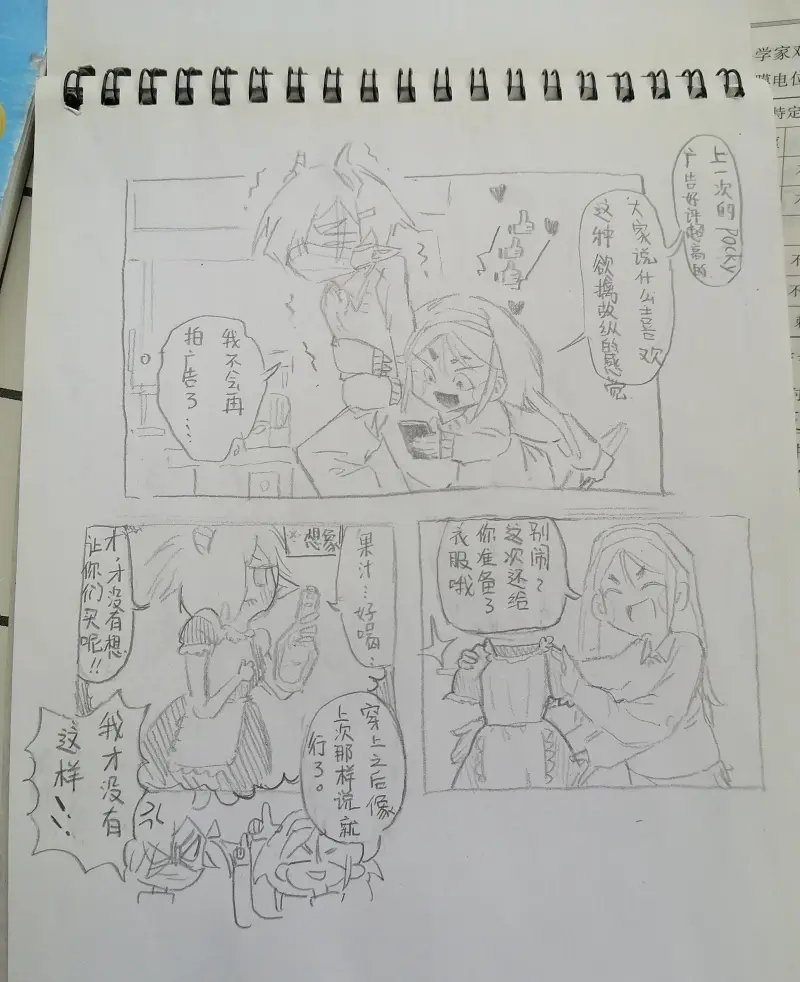 上一次的Pocky
广告好评超高的
大家说什么喜欢
这种欲擒故纵的感觉
我不会再
拍广告了……
别闹~
这次还给
你准备了
衣服哦
*想象
果汁…好喝…
才,才没有想
让你们买呢!!
穿上之后像
上次那样说就
行了。
我才没有
这样!!
学家对
膜电位
特定